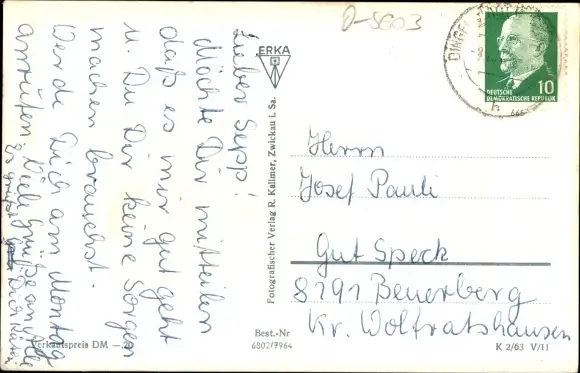 Lieber Sepp!
Möchte Dir mitteilen
daß es mir gut geht
u. Du Dir keine Sorgen
machen brauchst.
Werde Dich am Montag
anrufen. Viele Grüße an alle
Es grüßt Dich
Verkaufspreis DM —
ERKA
Fotografischer Verlag R. Kallmer, Zwickau i. Sa.
Best.-Nr
6802/7964
D-5603
DEUTSCHE
DEMOKRATISCHE REPUBLIK
10
h
Herrn
Josef Pauli
Gut Speck
8191 Beuerberg
Kr. Wolfratshausen
K 2/63 V/11